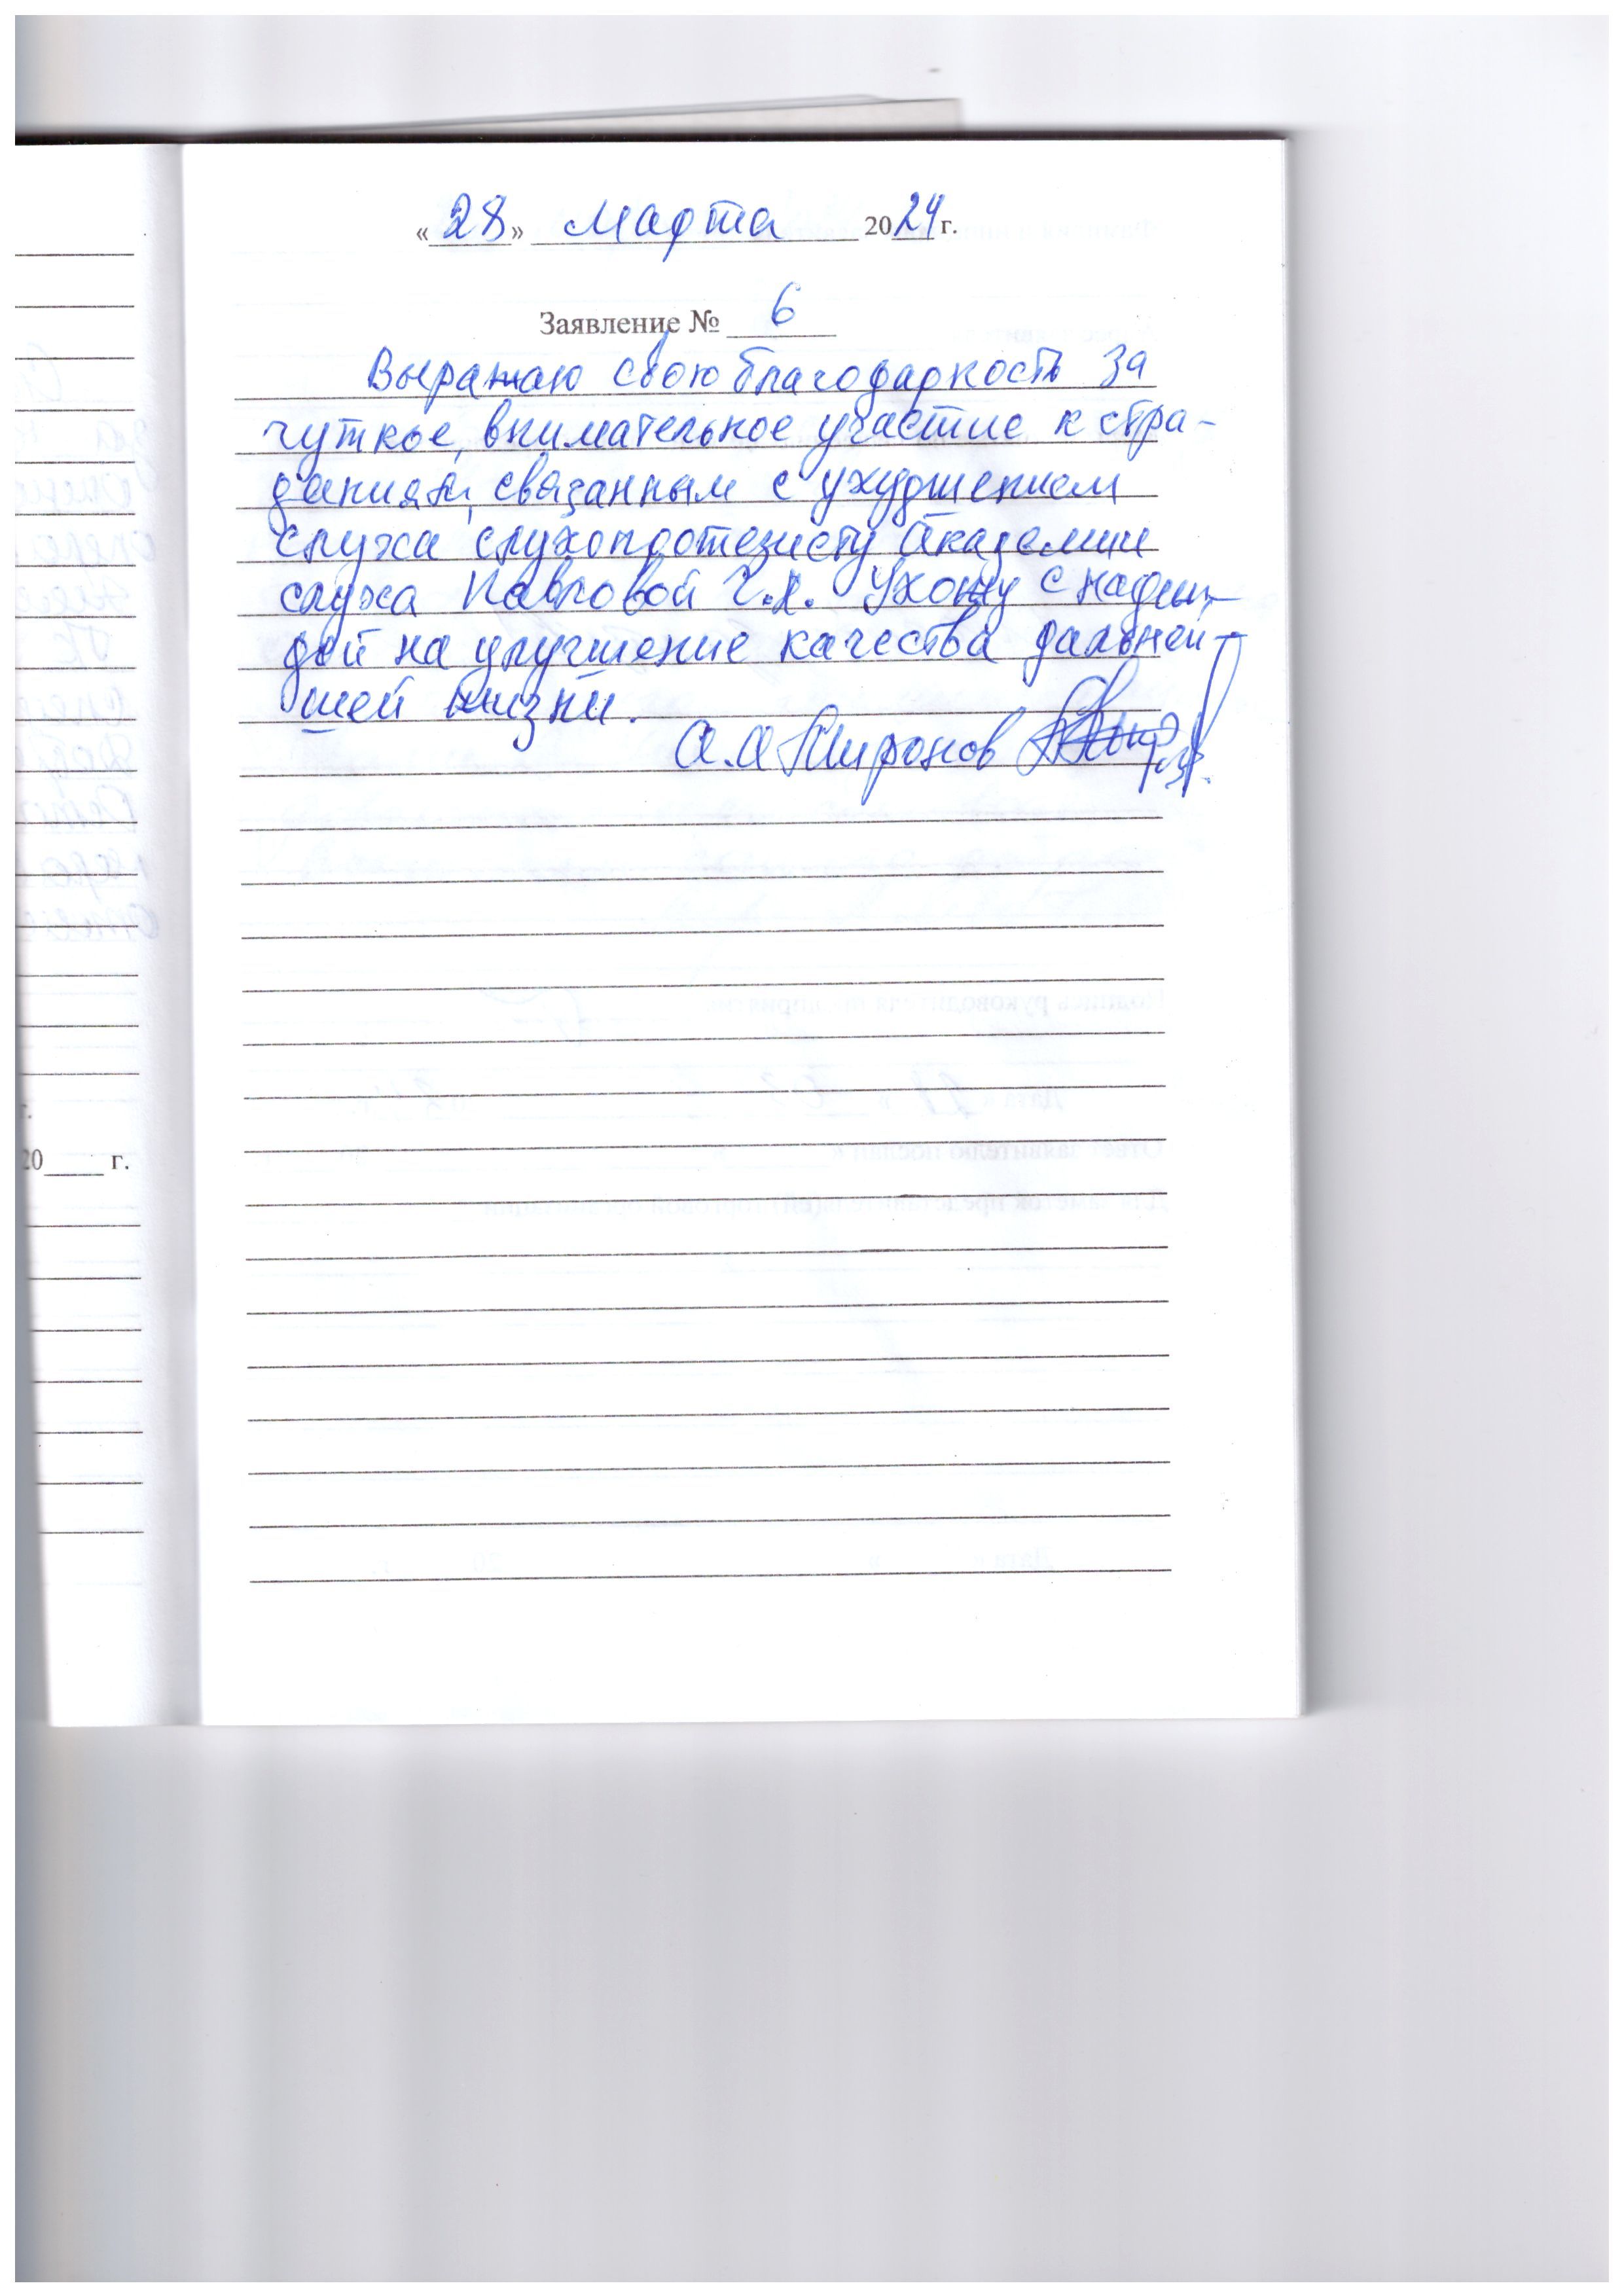 «28» Марта 2024 г.
Заявление № 6
Выражаю свою благодарность за
чуткое, внимательное участие к стра-
даниям, связанным с ухудшением
слуха слухопротезисту Академии
слуха Павловой Г.Я. Ухожу с надеж-
дой на улучшение качества дальней-
шей жизни.
А.А Миронов
20____ г.